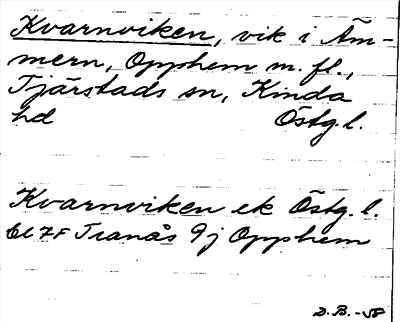 Kvarnviken, vik i Äm-
mern, Opphem m. fl.,
Tjärstads sn, Kinda
hd Östg. l.
Kvarnviken ek Östg. l.
bl 7F Tranås 9j Opphem
D. B. -58